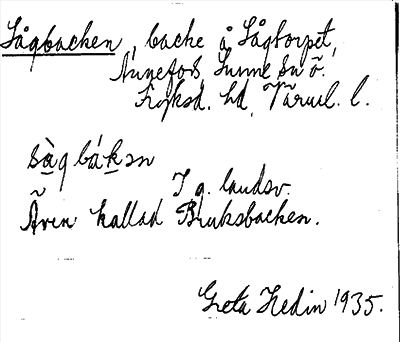 Sågbacken, backe å Sågtorpet,
Annefors, Sunne sn ö.
Fryksd. hd, Värml. l.
sàgbákən
I g. landsv.
Även kallad Bruksbacken.
Greta Hedin 1935.